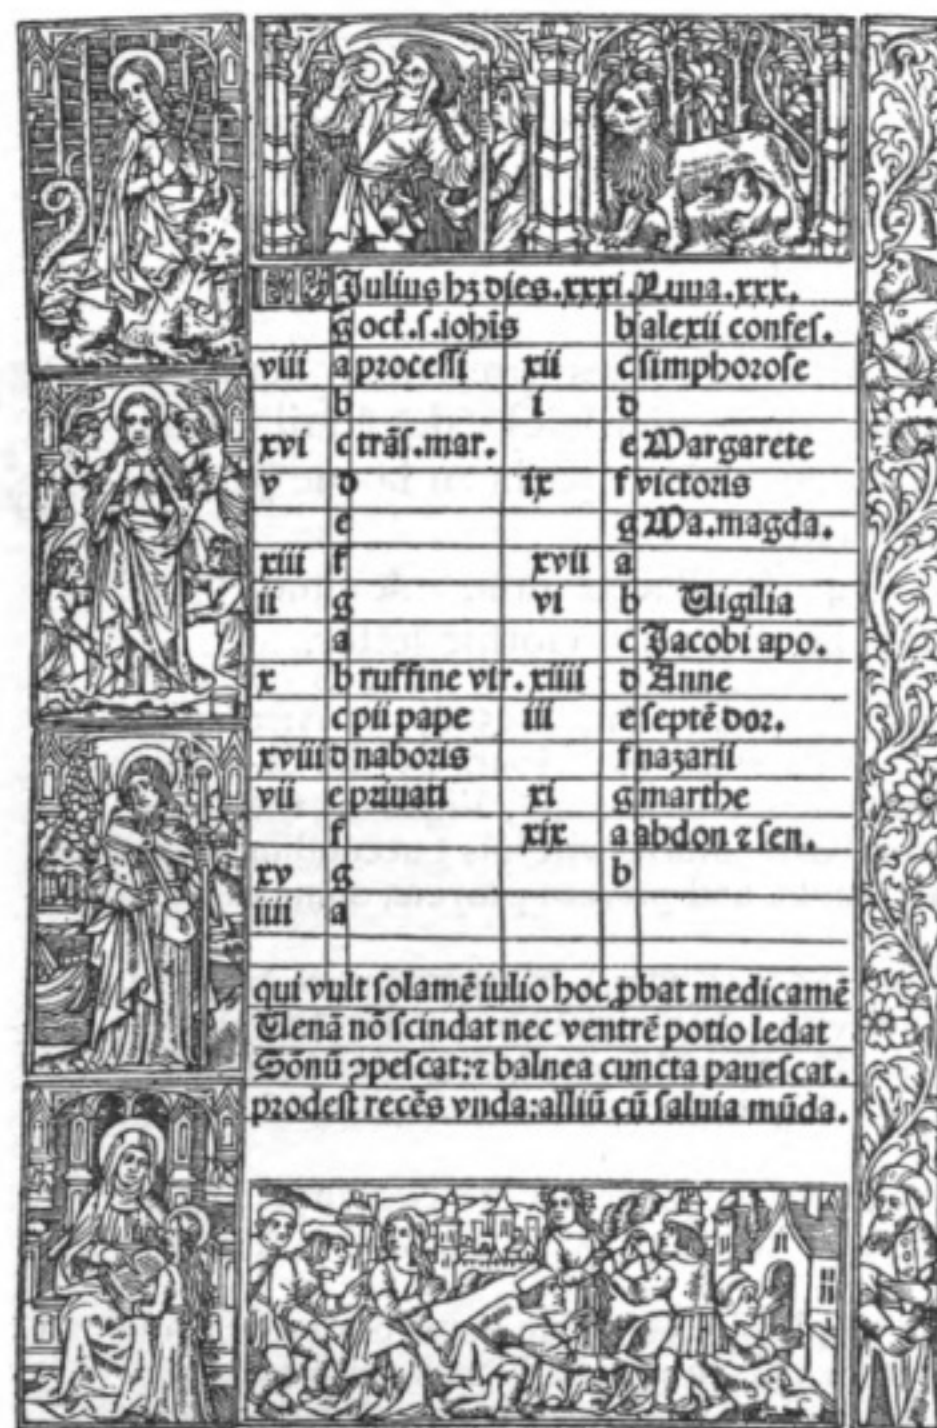 KL Julius hꝫ dies.xxxi.Luna.xxx.
g oct.s.iohīs b alexii confes.
viii a processi xii c simphorose
b i d
xvi c trās.mar. e Margarete
v d ix f victoris
e g Ma.magda.
xiii f xvii a
ii g vi b Uigilia
a c Jacobi apo.
x b ruffine vir. xiiii d Anne
c pii pape iii e septē dor.
xviii d naboris f nazarii
vii e priuati xi g marthe
f xix a abdon ⁊ sen.
xv g b
iiii a
qui vult solamē iulio hoc ꝓbat medicamē
Uenā nō scindat nec ventrē potio ledat
Sōnū ꝯpescat:⁊ balnea cuncta pauescat.
prodest recēs vnda:alliū cū saluia mūda.